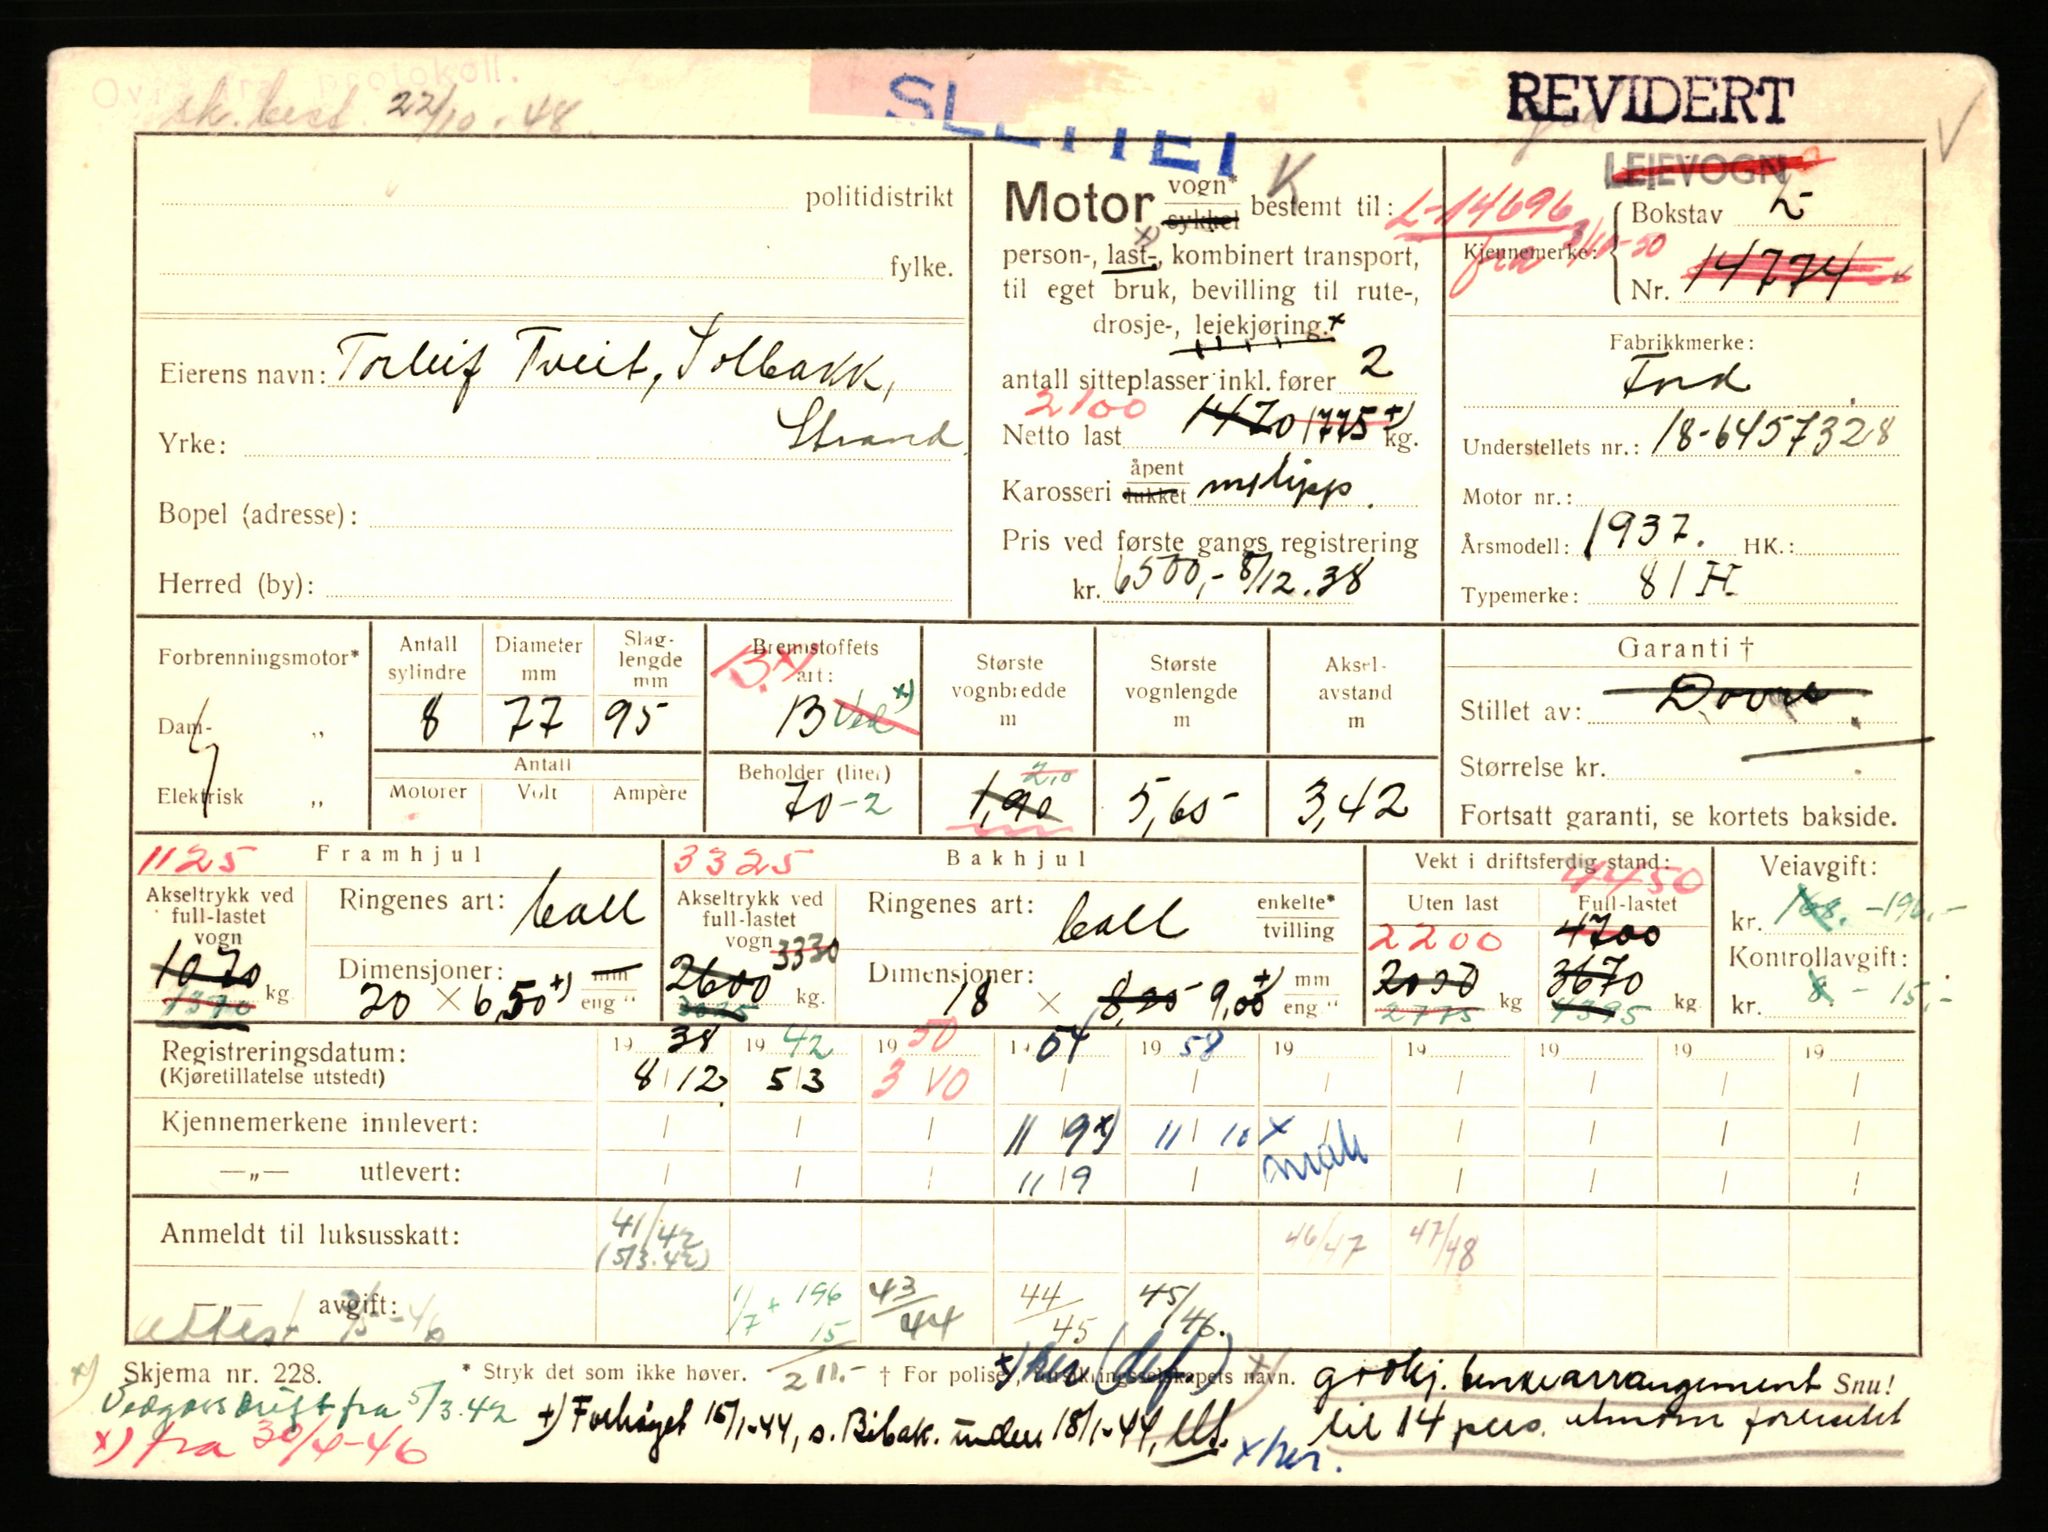 Ovf. fra protokoll.
sk. best. 22/10-48.
SLETTET
REVIDERT
V
K
LEIEVOGN
politidistrikt
fylke.
Eierens navn: Torleif Tveit, Solbakk,
Strand
Yrke:
Bopel (adresse):
Herred (by):
Motor vogn* sykkel bestemt til:
person-, last-, kombinert transport,
til eget bruk, bevilling til rute-,
drosje-, leiekjøring.*
antall sitteplasser inkl. fører 2
2100
Netto last 1470 1775 +) kg.
Karosseri åpent lukket m/tipp.
Pris ved første gangs registrering
kr. 6500,- 8/12.38
L-14696
fra 3/10-50
Kjennemerke:
Bokstav L
Nr. 14774
Fabrikkmerke:
Ford
Understellets nr.: 18-6457328
Motor nr.:
Årsmodell: 1937. HK.:
Typemerke: 81 H
Forbrenningsmotor*
Dam- „
Elektrisk „
Antall sylindre 8
Diameter mm 77
Slag-lengde mm 95
Antall
Motorer Volt Ampère
Bremstoffets art: B.x)
B Ved x)
Beholder (liter)
70-2
Største vognbredde m
2,10
1,90
Største vognlengde m
5,65
Aksel-avstand m
3,42
Garanti †
Stillet av: Dovre
Størrelse kr.
Fortsatt garanti, se kortets bakside.
1125 Framhjul
Akseltrykk ved full-lastet vogn
1070
1370 kg
Ringenes art: ball
Dimensjoner: 20 × 6,50 +) mm eng "
3325 Bakhjul
Akseltrykk ved full-lastet vogn 3330
2600
3025 kg.
Ringenes art: ball enkelte* tvilling
Dimensjoner: 18 × 8,25 9,00 +) mm eng "
Vekt i driftsferdig stand:
4450
Uten last Full-lastet
2200 4700
2030 kg 3670 kg.
2775 4395
Veiavgift:
kr. 168.-196,-
Kontrollavgift:
kr. 8.- 15,-
Registreringsdatum: 19 38 19 42 19 50 19 54 19 58 19 19 19 19 19
(Kjøretillatelse utstedt) 8/12 5/3 3/10
Kjennemerkene innlevert: 11/9 x) 11/10 x
—„— utlevert: 11/9
Anmeldt til luksusskatt: 41/42 46/47 47/48
(5/3.42)
—„— avgift: 1/7 + 196 43/44 44/45 45/46.
15
Attest
Skjema nr. 228. * Stryk det som ikke høver. 211.- † For poliser, forsikringsselskapets navn. Snu!
x) her (def)
x) Vedgassdrift fra 5/3.42
x) fra 30/4-46
+) Forhøyet 15/1-44, s. Bibak. under 18/1-44,
x her.
x) godkj. benkearrangement
til 14 pers. utenom førersetet